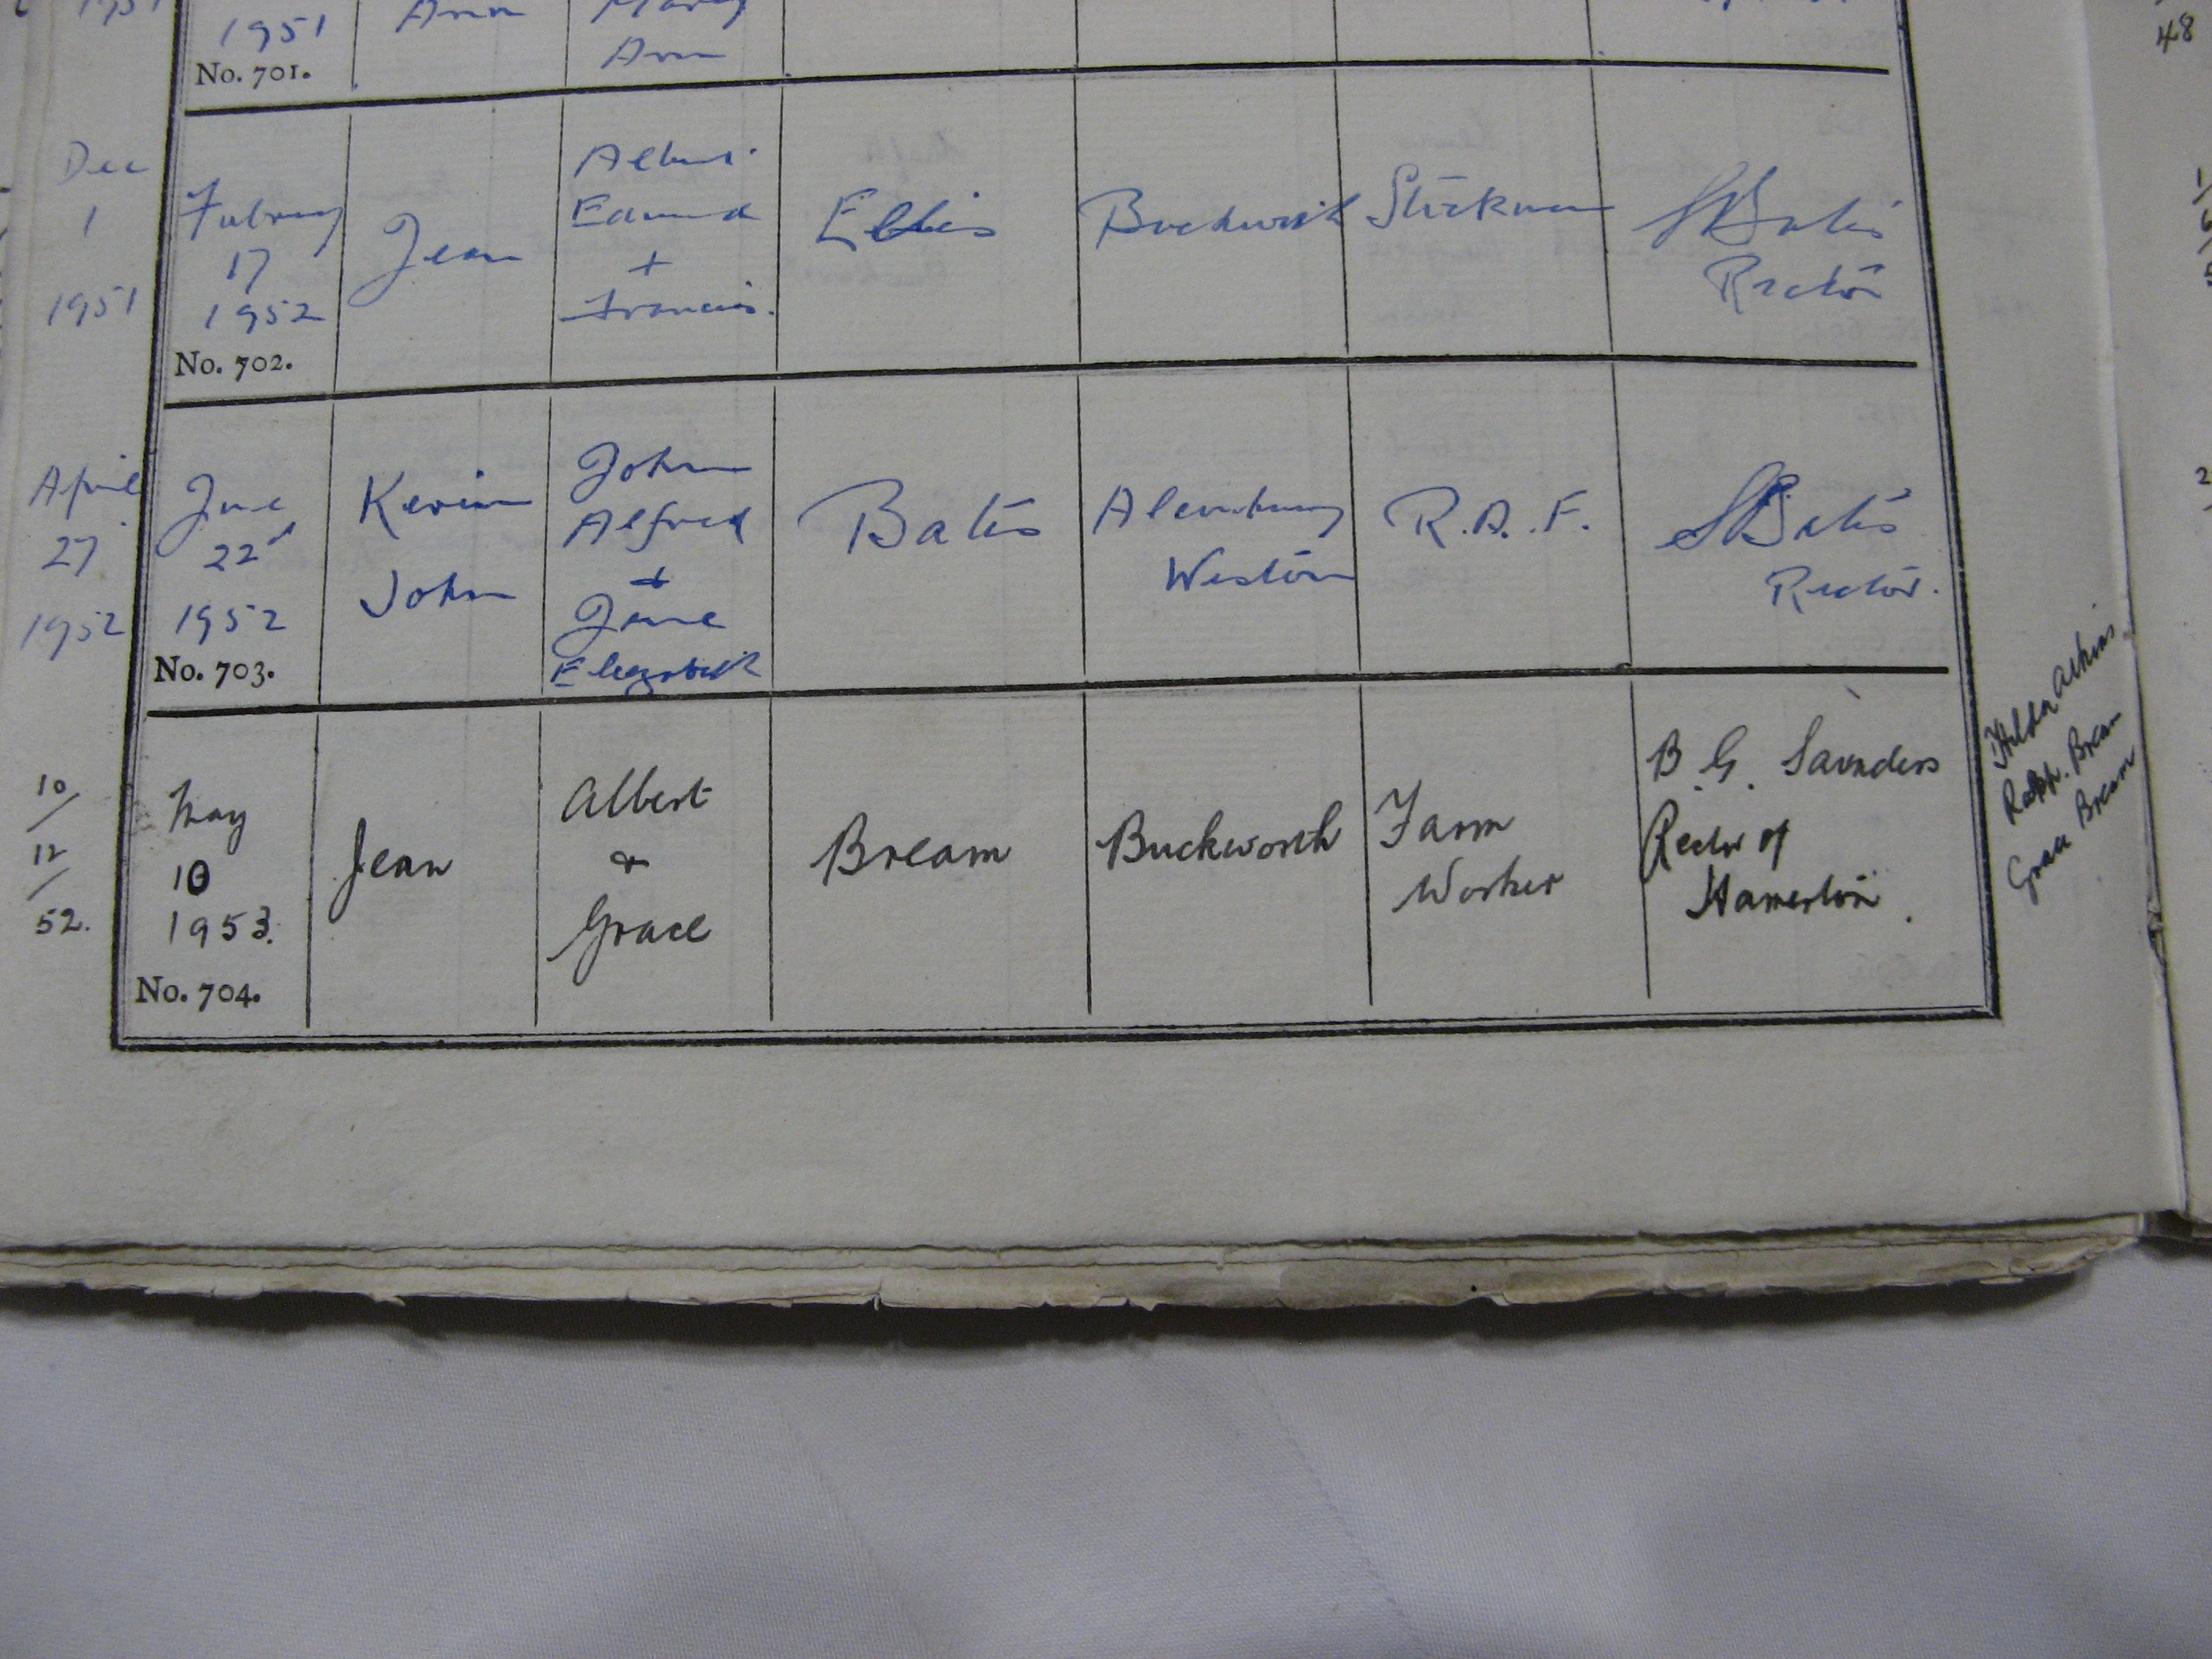 1951
1951
Ann
Mary
Ann
No. 701.
48
Dec
1
1951
17
1952
No. 702.
Jean
Albert
Edmund
+
Francis.
Ellis
Buckworth
Stockman
Bates
Rector
April
27
1952
June
22d
1952
No. 703.
Kevin
John
John
Alfred
+
Jane
Elizabeth
Bates
Alconbury
Weston
R.A.F.
Bates
Rector.
10/
12/
52.
May
10
1953.
No. 704.
Jean
Albert
&
Grace
Bream
Buckworth
Farm
Worker
B. G. Saunders
Rector of
Hamerton.
Hilda Atkins
Ralph. Bream
Grace Bream